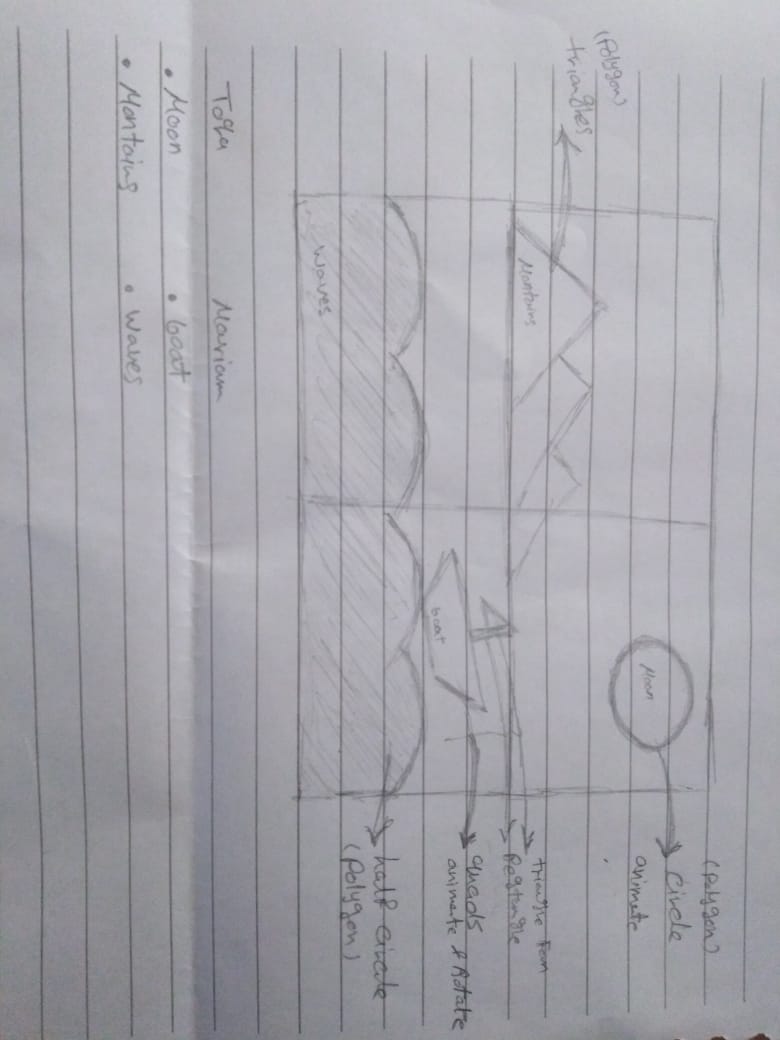 (Polygon)
circle
animate
Moon
(Polygon)
triangles
Montains
triangle Fan
Regtangle
quads
animate & Rotate
boat
half circle
(Polygon)
waves
Toqa Mariam
• Moon • boat
• Montains • waves